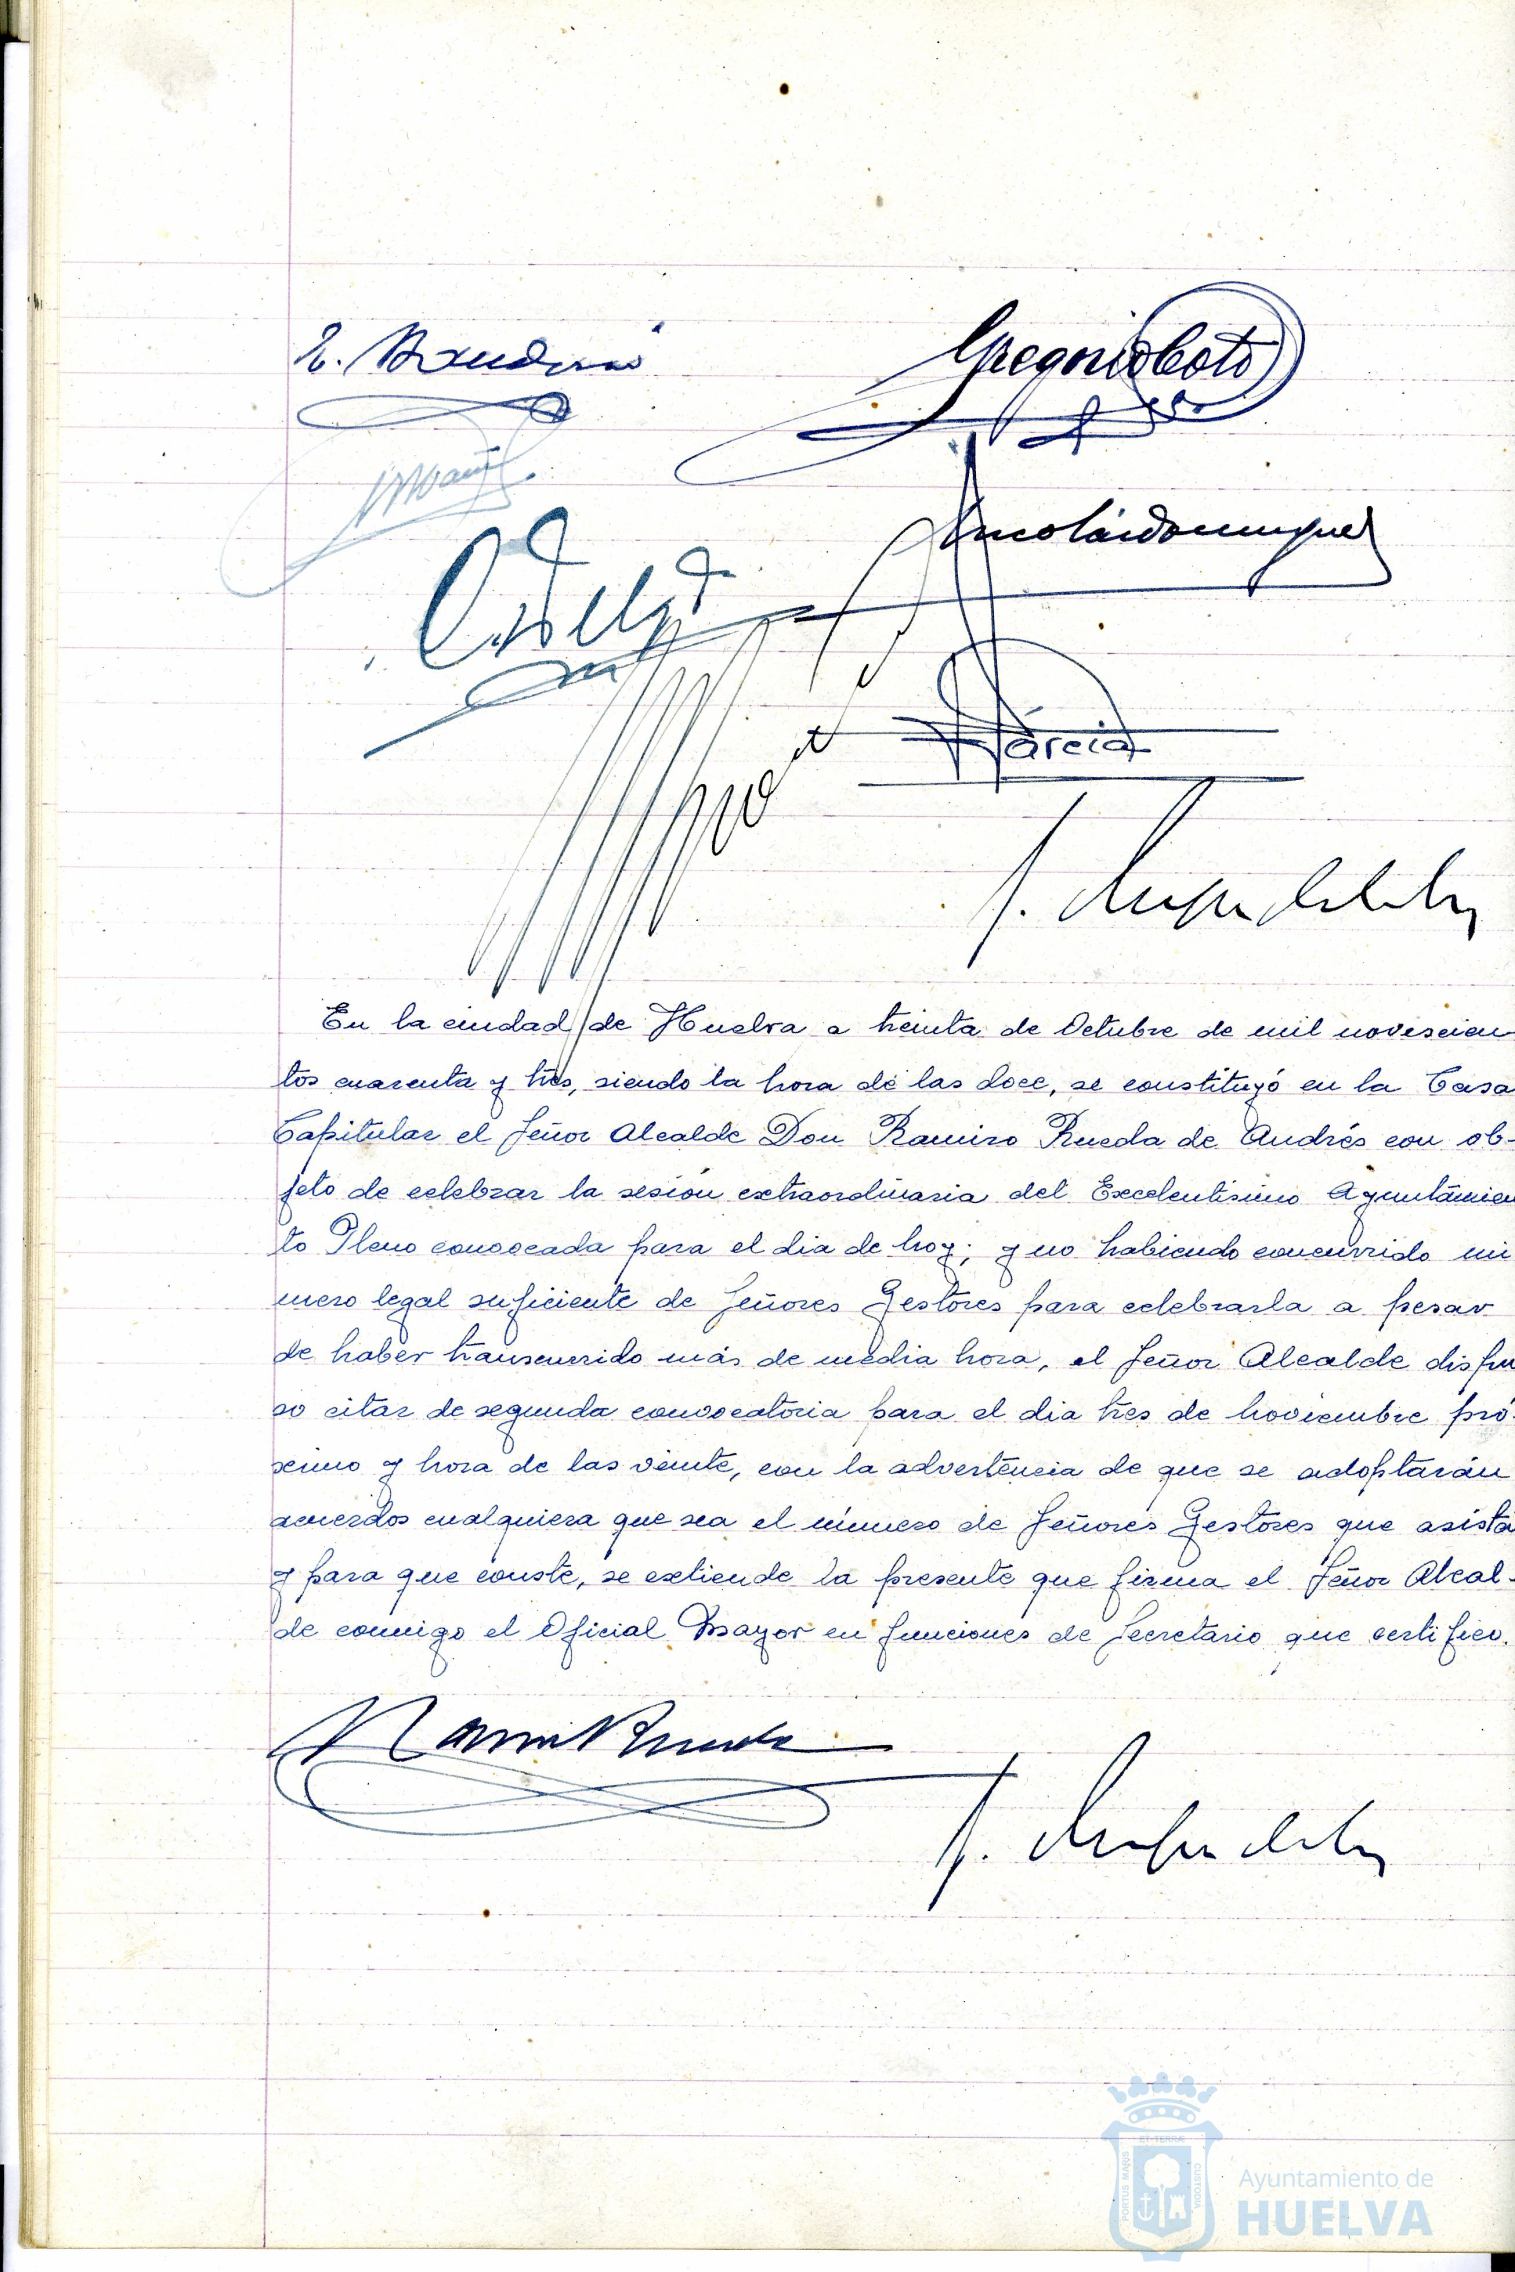 Gregorio Coto
García
En la ciudad de Huelva a treinta de Octubre de mil novescien-
tos cuarenta y tres, siendo la hora de las doce, se constituyó en la Casa
Capitular el Señor Alcalde Don Ramiro Rueda de Andrés con ob-
jeto de celebrar la sesión extraordinaria del Excelentísimo Ayuntamien
to Pleno convocada para el dia de hoy; y no habiendo concurrido nú
mero legal suficiente de Señores Gestores para celebrarla a pesar
de haber transcurrido más de media hora, el Señor Alcalde dispu
so citar de segunda convocatoria para el dia tres de noviembre pró-
ximo y hora de las veinte, con la advertencia de que se adoptarán
acuerdos cualquiera que sea el número de Señores Gestores que asista
y para que conste, se extiende la presente que firma el Señor Alcal-
de conmigo el Oficial Mayor en funciones de Secretario que certifico.
Ramiro Rueda
ET TERRÆ
PORTUS MARIS
CUSTODIA
Ayuntamiento de
HUELVA